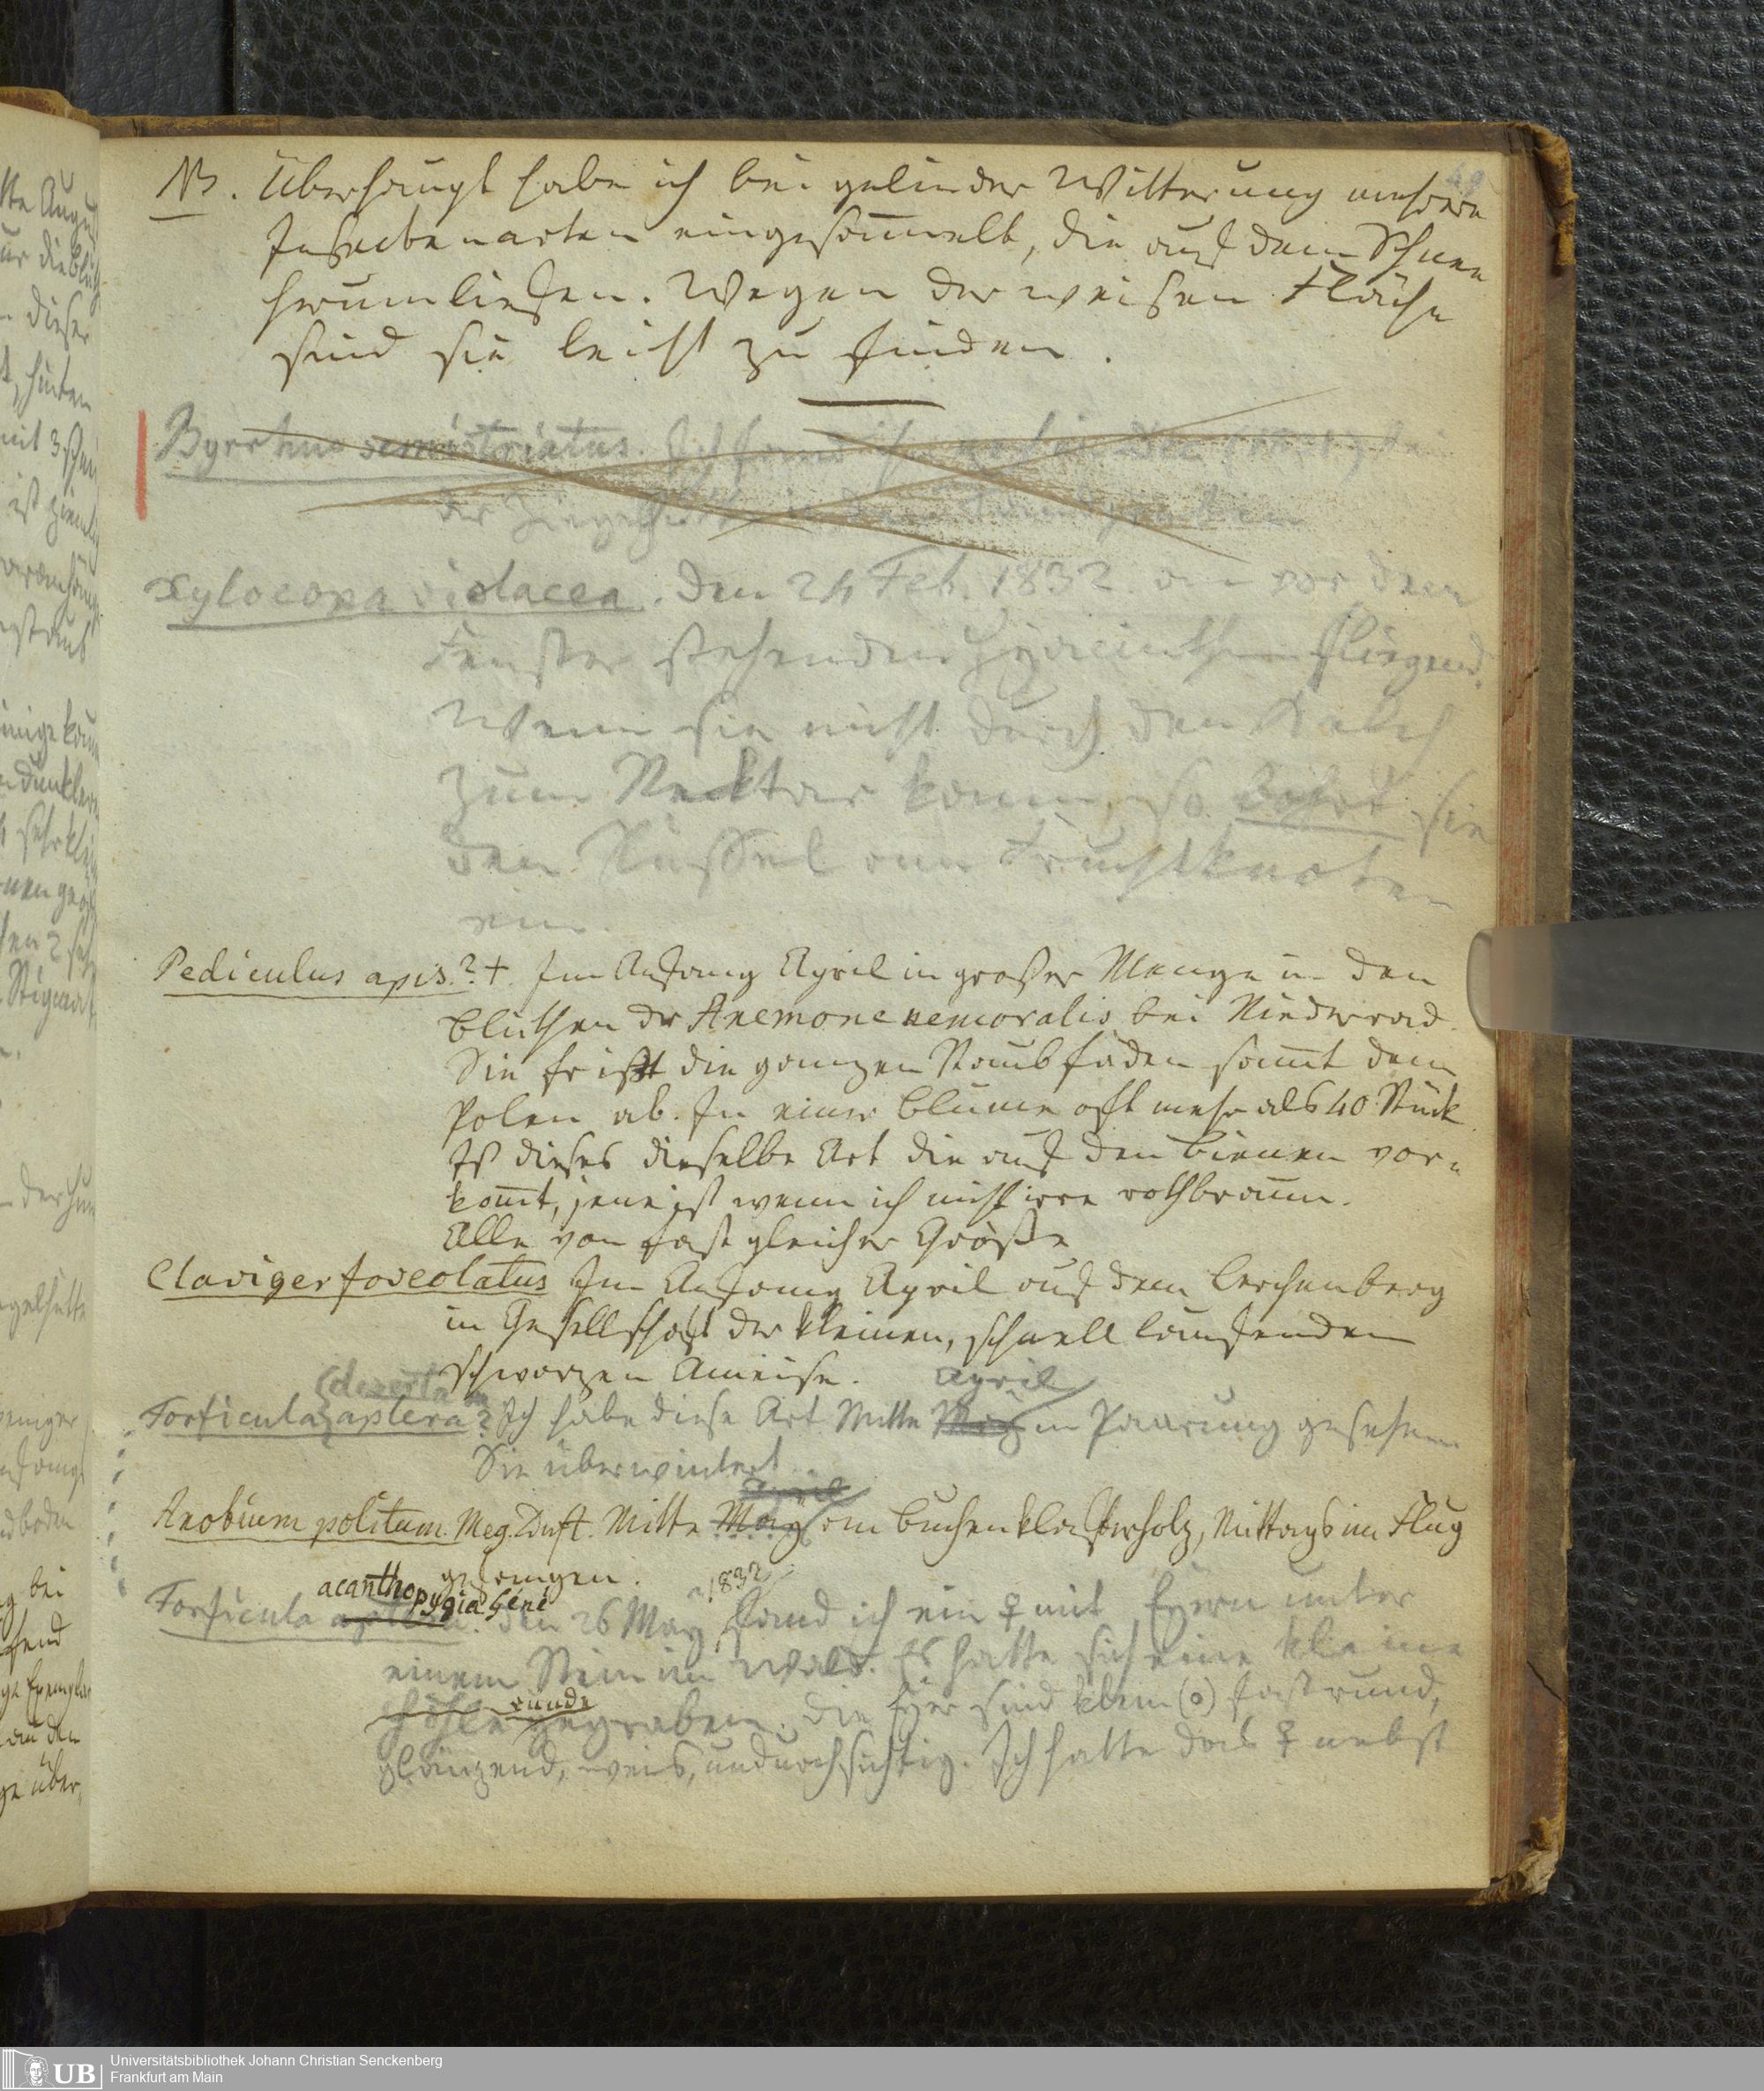 49
NB. Überhaupt habe ich bei gelinder Witterung mehrere
Insectenarten eingesam̄elt, die auf dem Schnee
herumliefen. Wegen der weisen Fläche
sind sie leicht zu finden.
Byrrhus semistriatus. Ich fand ihn
der Ziegelhütte in
Xylocopa violacea. Den 24 Feb. 1832 an vor dem
Fenster stehenden Hyacinthen fliegend.
Wenn sie nicht durch den Kelch
zum Necktar kann, so bohrt sie
den Rüssel am Fruchtknoten
ein.
Pediculus apis.? +. Im Anfang April in großer Menge in den
Blüthen der Anemone nemoralis bei Niederrad.
Sie frißt die ganzen Staubfäden sam̄t dem
Polen ab. In einer Blume oft mehr als 40 Stück
Ist dieses dieselbe Art die auf den Bienen vor-
kom̄t, jene ist wenn ich nicht irre rothbraun.
Alle von fast gleicher Größe
Claviger foveolatus Im Anfang April auf dem Lerchenberg
in Gesellschaft der kleinen, schnell laufenden
schwarzen Ameise.
April
Forficula aptera? Ich habe diese Art Mitte May in Paarung gesehen
Sie überwintert.
April
Anobium politum. Meg. Duft. Mitte May am Buchenklafterholz, Mittags im Flug
gefangen.
acanthopygia Géné 1832
Forficula aptera. Den 26 May fand ich ein ♀ mit Eyern unter
einem Stein im Wald. Es hatte sich eine kleine
runde
Höhle gegraben. Die Eyer sind klein (o) fast rund,
glänzend, weis, undurchsichtig. Ich hatte das ♀ nebst
Universitätsbibliothek Johann Christian Senckenberg
Frankfurt am Main
UB